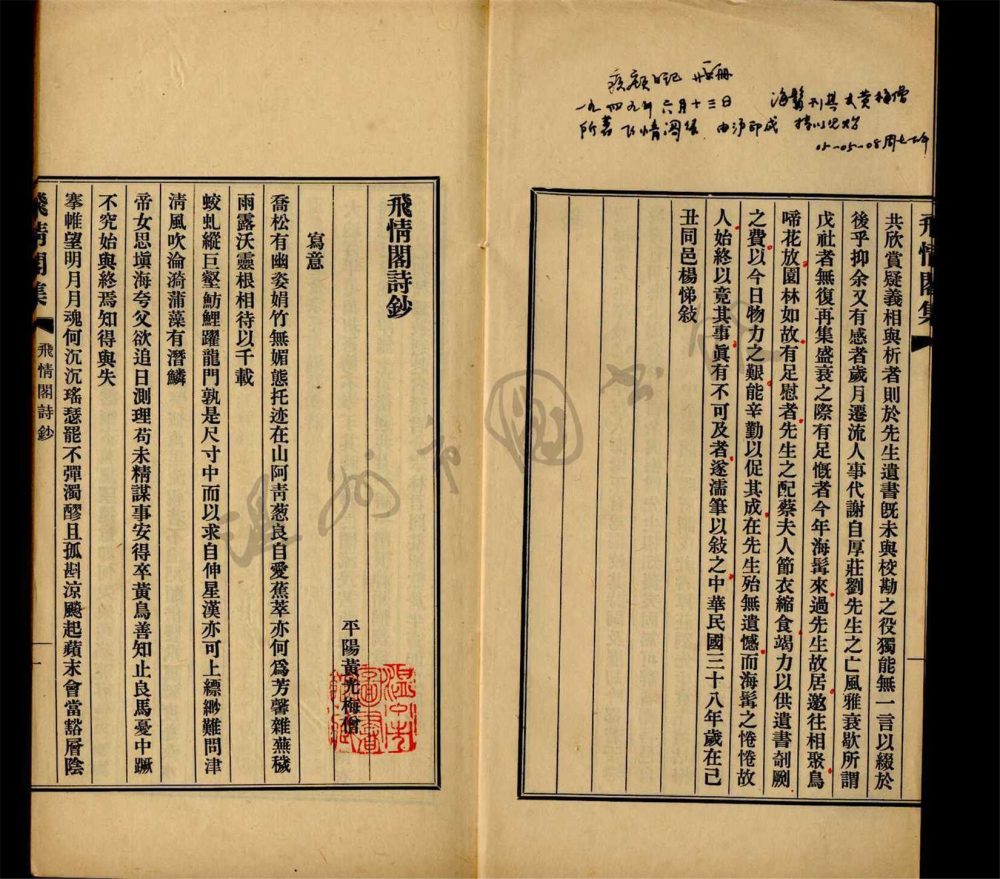 一九四九年六月十三日
05-05-08
飛情閣集
共欣賞疑義相與析者則於先生遺書旣未與校勘之役獨能無一言以綴於
後乎抑余又有感者歲月遷流人事代謝自厚莊劉先生之亡風雅衰歇所謂
戊社者無復再集盛衰之際有足慨者今年海髯來過先生故居邀往相聚鳥
啼花放園林如故有足慰者先生之配蔡夫人節衣縮食竭力以供遺書剞劂
之費以今日物力之艱能辛勤以促其成在先生殆無遺憾而海髯之惓惓故
人始終以竟其事眞有不可及者遂濡筆以敍之中華民國三十八年歲在己
丑同邑楊悌敍
飛情閣詩鈔
平陽黃光梅僧
寫意
喬松有幽姿娟竹無媚態托迹在山阿靑葱良自愛蕉萃亦何爲芳馨雜蕪穢
雨露沃靈根相待以千載
蛟虬縱巨壑魴鯉躍龍門孰是尺寸中而以求自伸星漢亦可上縹緲難問津
清風吹淪漪蒲藻有潛鱗
帝女思塡海夸父欲追日測理苟未精謀事安得卒黃鳥善知止良馬憂中蹶
不究始與終焉知得與失
搴帷望明月月魂何沉沉瑤瑟罷不彈濁醪且孤斟涼飈起蘋末會當豁層陰
飛情閣集
飛情閣詩鈔
一
溫州市圖書館